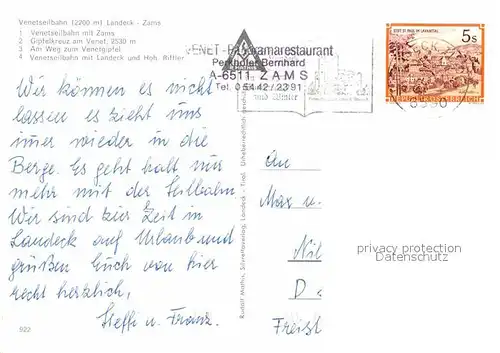 Venetseilbahn (2200 m) Landeck - Zams
1 Venetseilbahn mit Zams
2 Gipfelkreuz am Venet, 2530 m
3 Am Weg zum Venetgipfel
4 Venetseilbahn mit Landeck und Hoh. Riffler
VENET-Panoramarestaurant
Perkhofer Bernhard
A-6511 ZAMS
Tel. 0 54 42 / 23 91
und Winter
5 S
STIFT ST. PAUL IM LAVANTTAL
REPUBLIK ÖSTERREICH
Wir können es nicht
lassen es zieht uns
immer wieder in die
Berge. Es geht halt nur
mehr mit der Seilbahn
Wir sind zur Zeit in
Landeck auf Urlaub und
grüßen Euch von hier
recht herzlich,
Steffi u. Franz.
922
Rudolf Mathis, Silvrettaverlag, Landeck - Tirol. Urheberrechtlich
An
Max u.
Nil
D
Freist
privacy protection
Datenschutz